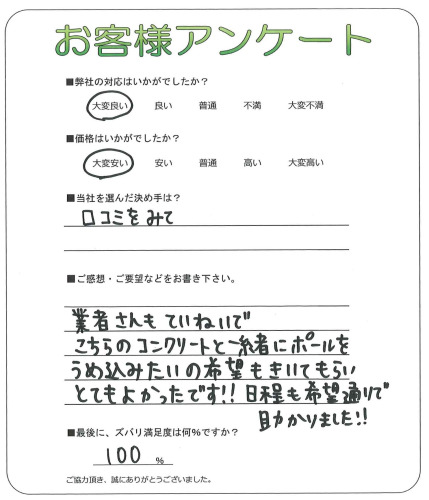 お客様アンケート
■弊社の対応はいかがでしたか？
大変良い 良い 普通 不満 大変不満
■価格はいかがでしたか？
大変安い 安い 普通 高い 大変高い
■当社を選んだ決め手は？
口コミをみて
■ご感想・ご要望などをお書き下さい。
業者さんもていねいで
こちらのコンクリートと一緒にポールを
うめ込みたいの希望もきいてもらい
とてもよかったです!! 日程も希望通りで
助かりました!!
■最後に、ズバリ満足度は何%ですか？
100 %
ご協力頂き、誠にありがとうございました。